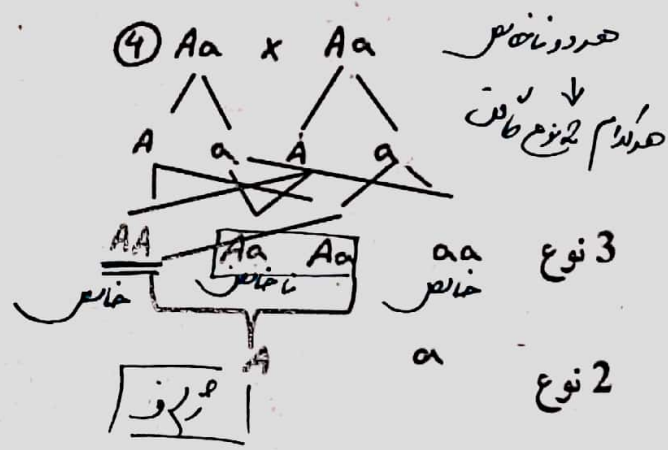 ④ Aa × Aa هر دو ناخالص
↓
هر کدام ۲ نوع گامت
A a A a
AA Aa Aa aa 3 نوع
خالص ناخالص خالص
A a 2 نوع